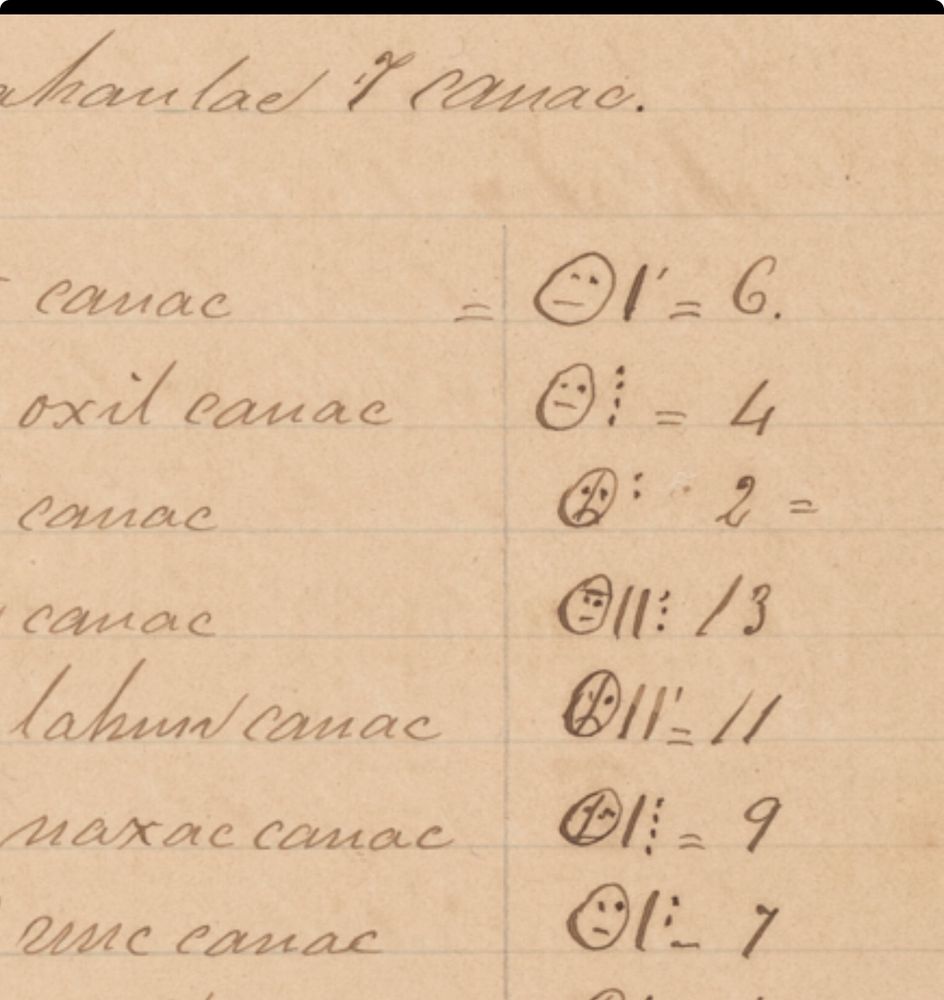 ahaulac 7 canac.
canac = = 6.
oxil canac = 4
canac 2 =
canac 13
lahun canac = 11
naxac canac = 9
canac = 7